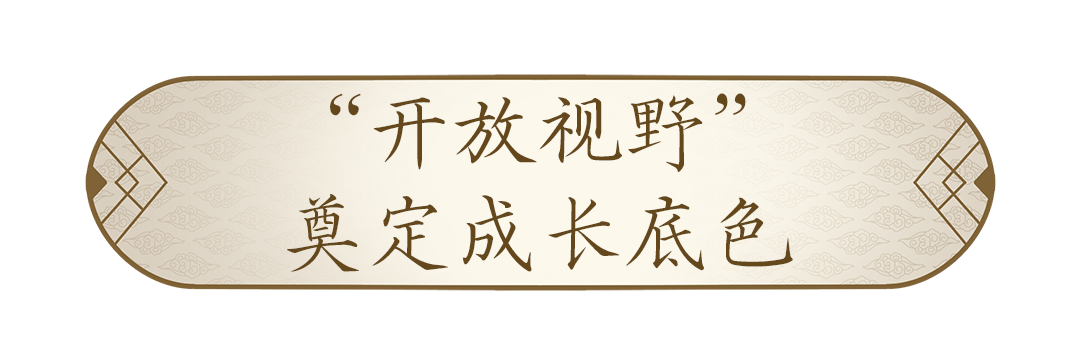 “开放视野”
奠定成长底色